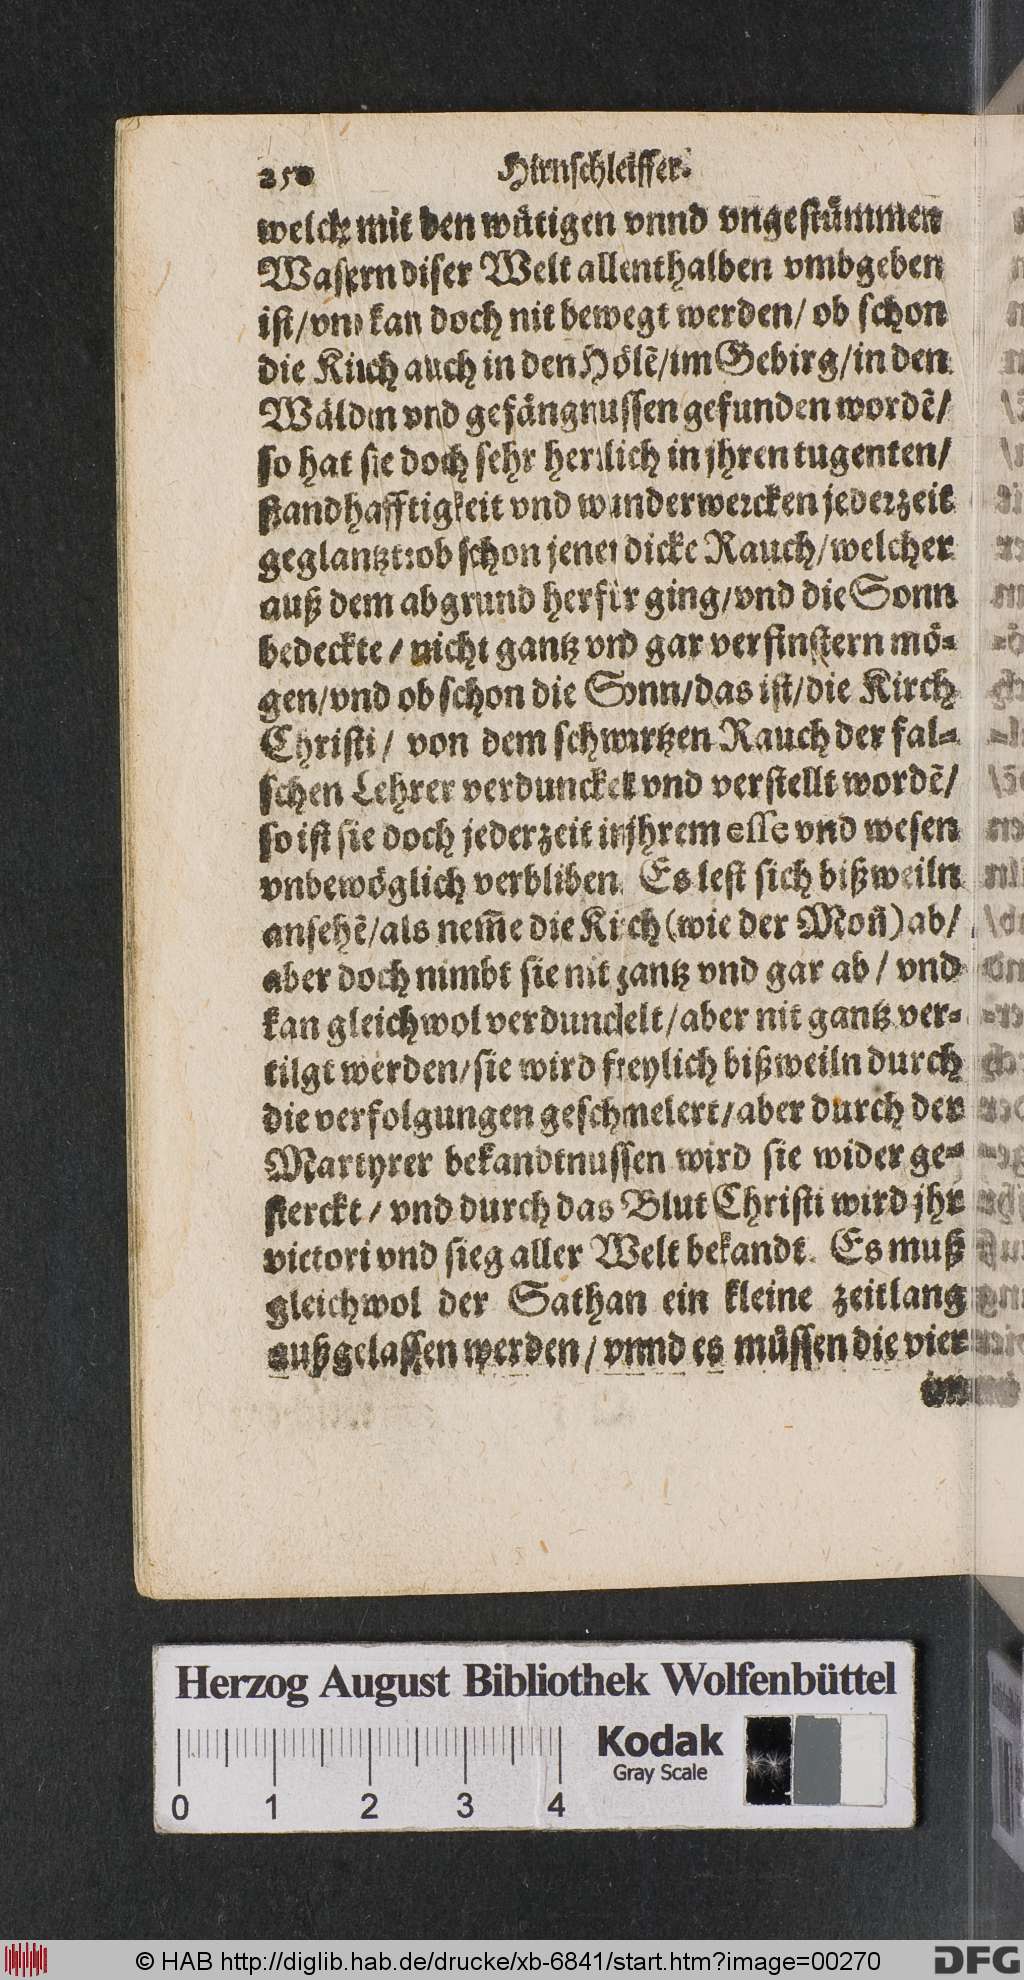 250 Hirnschleiffer.
welche mit den wütigen vnnd vngestümmen
Wassern diser Welt allenthalben vmbgeben
ist/vnd kan doch nit bewegt werden/ ob schon
die Kirch auch in den Hölẽ/im Gebirg/in den
Wälden vnd gefängnussen gefunden wordẽ/
so hat sie doch sehr herrlich in jhren tugenten/
standhafftigkeit vnd wunderwercken jederzeit
geglantzt: ob schon jener dicke Rauch/welcher
auß dem abgrund herfür ging/vnd die Sonn
bedeckte / nicht gantz vnd gar verfinstern mö-
gen/vnd ob schon die Sonn/das ist/die Kirch
Christi / von dem schwartzen Rauch der fal-
schen Lehrer verdunckelt vnd verstellt wordẽ/
so ist sie doch jederzeit in jhrem esse vnd wesen
vnbewöglich verbliben. Es lest sich bißweiln
ansehẽ/als nem̃e die Kirch (wie der Moñ) ab/
aber doch nimbt sie nit gantz vnd gar ab / vnd
kan gleichwol verdunckelt/aber nit gantz ver-
tilgt werden/sie wird freylich bißweiln durch
die verfolgungen geschmelert/aber durch der
Martyrer bekandtnussen wird sie wider ge-
sterckt / vnd durch das Blut Christi wird jhr
victori vnd sieg aller Welt bekandt. Es muß
gleichwol der Sathan ein kleine zeitlang
außgelassen werden / vnnd es müssen die vier
Herzog August Bibliothek Wolfenbüttel
Kodak
Gray Scale
0 1 2 3 4
© HAB http://diglib.hab.de/drucke/xb-6841/start.htm?image=00270
DFG